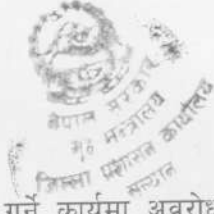 नेपाल सरकार
गृह मन्त्रालय
जिल्ला प्रशासन कार्यालय
सल्यान
गर्ने कार्यमा अवरोध